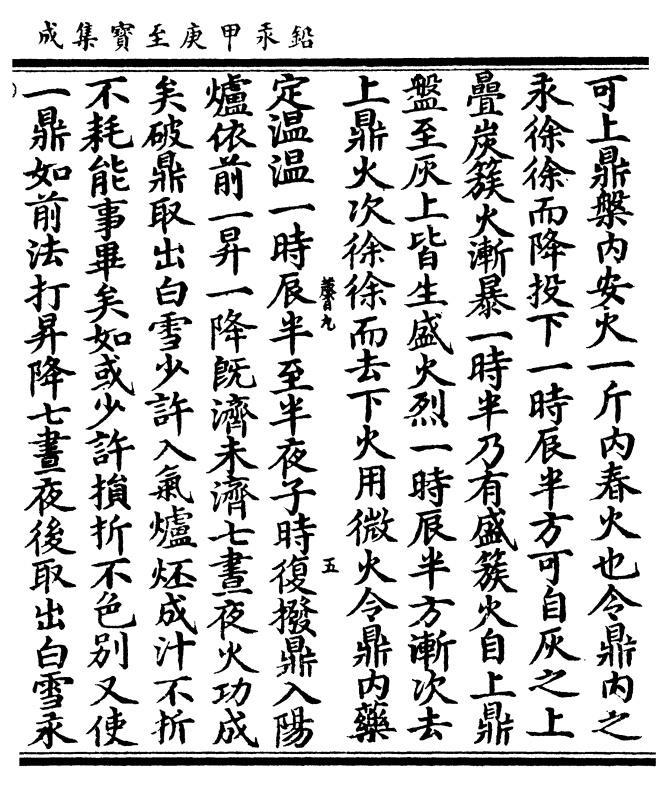 鉛汞甲庚至寶集成
可上鼎槃內安火一斤內春火也令鼎內之
汞徐徐而降投下一時辰半方可自灰之上
疊炭簇火漸暴一時半乃有盛簇火自上鼎
盤至灰上皆生盛火烈一時辰半方漸次去
上鼎火次徐徐而去下火用微火令鼎內藥
定温温一時辰半至半夜子時復撥鼎入陽
爐依前一昇一降旣濟未濟七晝夜火功成
矣破鼎取出白雪少許入氣爐炋成汁不折
不耗能事畢矣如或少許損折不色別又使
一鼎如前法打昇降七晝夜後取出白雪汞
九
五